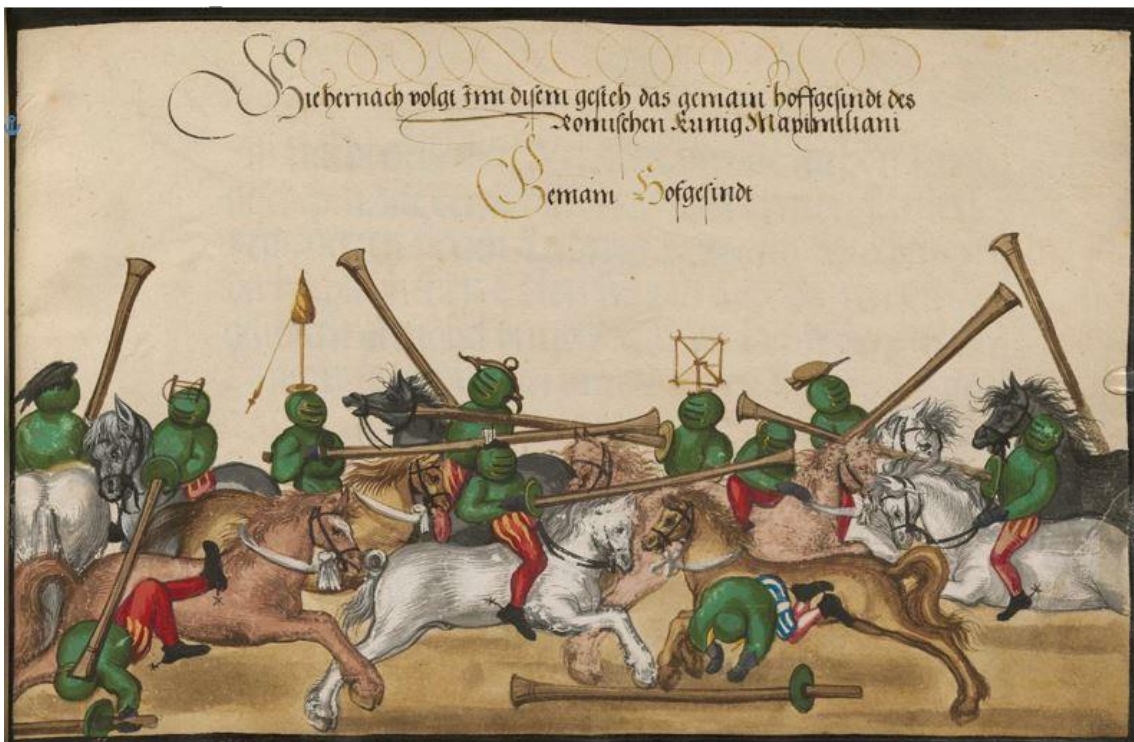 Hiehernach volgt Inn disem gestech das gemain hoffgesindt des
Romischen Kunig Maximiliani
Gemain Hofgesindt